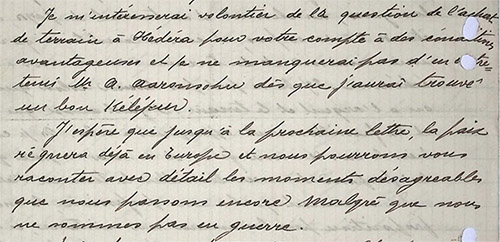 Je m'intéresserai volontier de la question de l'achat
de terrain à Hedéra pour votre compte à des conditions
avantageuses et je ne manquerai pas d'en entre=
tenir M. A. Aaronsohn dès que j'aurai trouvé
un bon
J'espère que jusqu'à la prochaine lettre, la paix
règnera déjà en Europe et nous pourrons vous
raconter avec détail les moments désagreables
que nous passons encore malgré que nous
ne sommes pas en guerre.